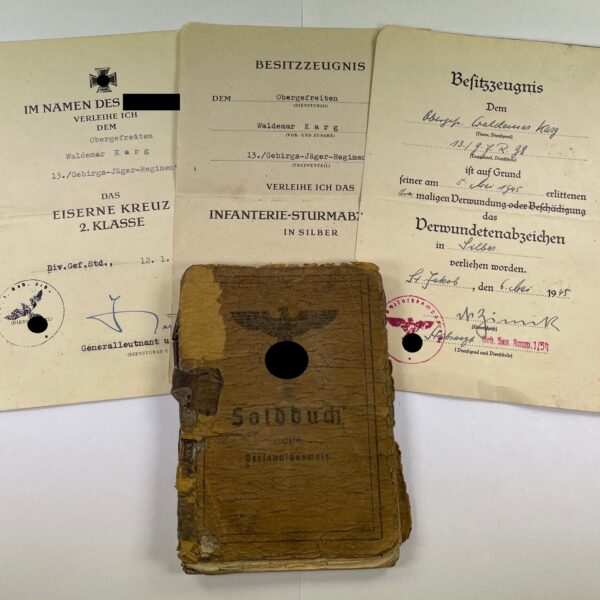 IM NAMEN DES
VERLEIHE ICH
DEM
Obergefreiten
Waldemar Karg
13./Gebirgs-Jäger-Regiment
DAS
EISERNE KREUZ
2. KLASSE
Div.Gef.Std., 12.1.
Generalleutnant u
(DIENSTGRAD U
BESITZZEUGNIS
DEM Obergefreiten
(DIENSTGRAD)
Waldemar Karg
(VOR- UND ZUNAME)
13./Gebirgs-Jäger-Regimen
(TRUPPENTEIL)
VERLEIHE ICH DAS
INFANTERIE-STURMAB
IN SILBER
Besitzzeugnis
Dem
Obergefr. Waldemar Karg
(Name, Dienstgrad)
13./G.J.R. 98
(Truppenteil, Dienststelle)
ist auf Grund
seiner am 5. Mai 1945 erlittenen
maligen Verwundung oder Beschädigung
das
Verwundetenabzeichen
in Silber
verliehen worden.
St. Jakob, den 6. Mai 1945
Stabsarzt Geb. San. Komp. 1/54
(Dienstgrad und Dienststelle)
Soldbuch
zugleich
Personalausweis